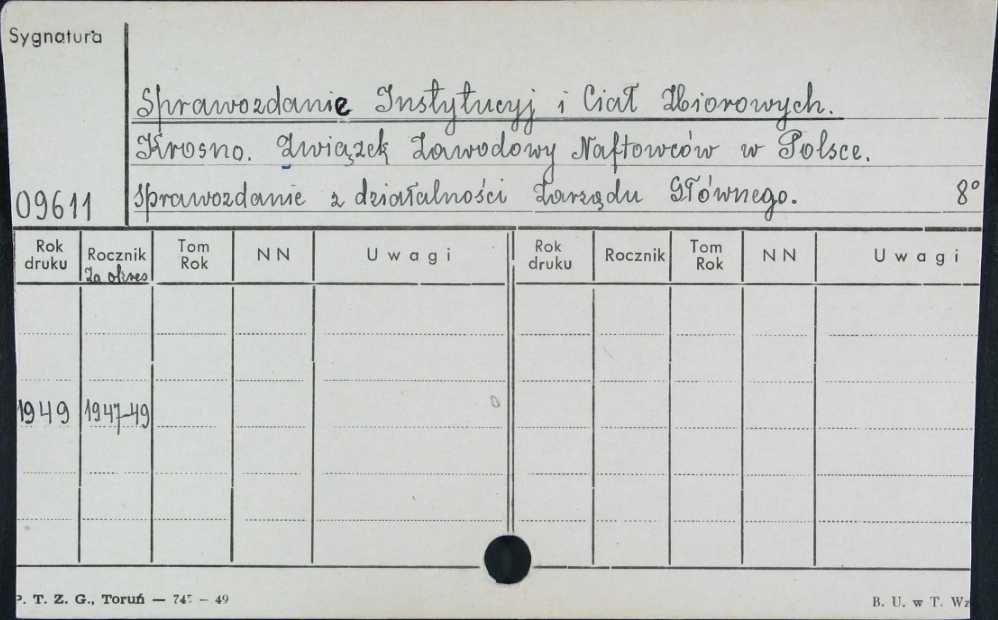 Sygnatura
Sprawozdanie Instytucyj i Ciał Zbiorowych.
Krosno. Związek Zawodowy Naftowców w Polsce.
09611 Sprawozdanie z działalności Zarządu Głównego. 8°
Rok druku Rocznik Za okres Tom Rok NN Uwagi Rok druku Rocznik Tom Rok NN Uwagi
1949 1947-49
P. T. Z. G., Toruń — 745 — 49 B. U. w T. Wz